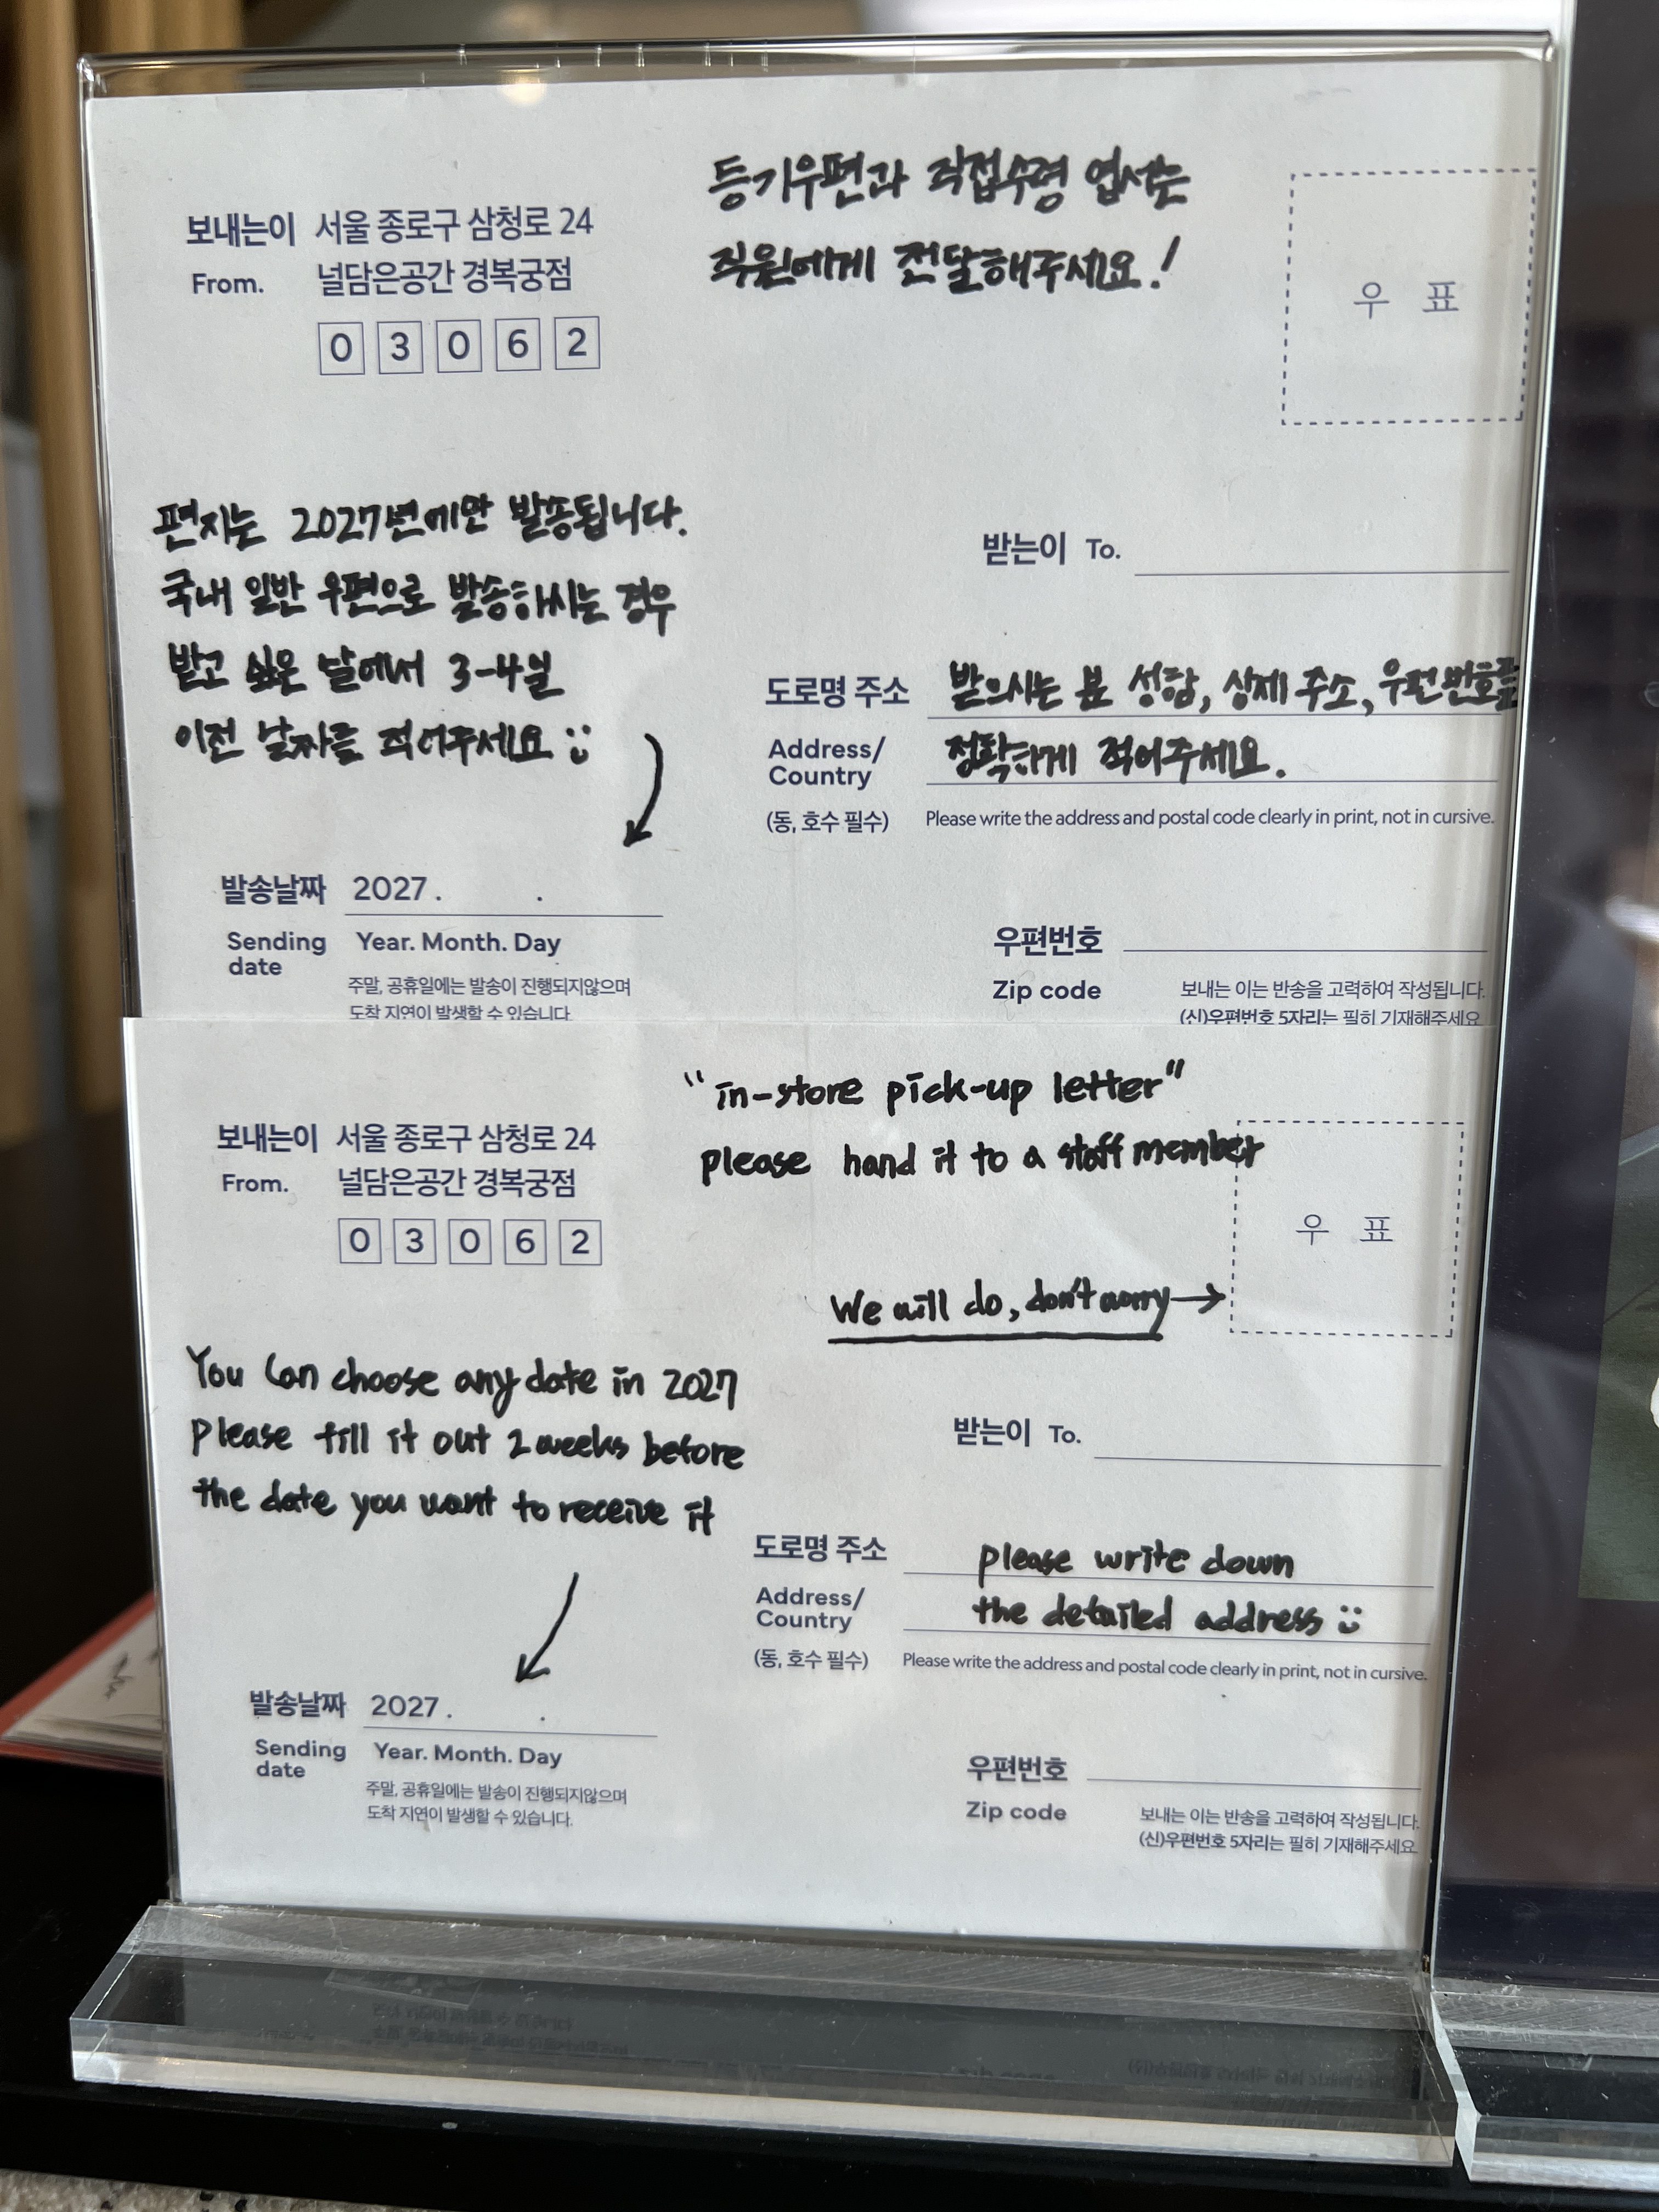 등기우편과 직접수령 엽서는
직원에게 전달해주세요!
보내는이 서울 종로구 삼청로 24
From. 널담은공간 경복궁점
0 3 0 6 2
우 표
편지는 2027년에만 발송됩니다.
국내 일반 우편으로 발송하시는 경우
받고 싶은 날에서 3-4일
이전 날짜를 적어주세요
받는이 To.
도로명 주소 받으시는 분 성함, 상세 주소, 우편번호를
Address/
Country
정확하게 적어주세요.
(동, 호수 필수) Please write the address and postal code clearly in print, not in cursive.
발송날짜 2027 . .
Sending
date
Year. Month. Day
주말, 공휴일에는 발송이 진행되지않으며
도착 지연이 발생할 수 있습니다.
우편번호
Zip code
보내는 이는 반송을 고력하여 작성됩니다.
(신)우편번호 5자리는 필히 기재해주세요
"in-store pick-up letter"
please hand it to a staff member
보내는이 서울 종로구 삼청로 24
From. 널담은공간 경복궁점
0 3 0 6 2
우 표
We will do, don't worry →
You can choose any date in 2027
Please fill it out 2 weeks before
the date you want to receive it
받는이 To.
도로명 주소 please write down
Address/
Country
the detailed address
(동, 호수 필수) Please write the address and postal code clearly in print, not in cursive.
발송날짜 2027 . .
Sending
date
Year. Month. Day
주말, 공휴일에는 발송이 진행되지않으며
도착 지연이 발생할 수 있습니다.
우편번호
Zip code
보내는 이는 반송을 고력하여 작성됩니다.
(신)우편번호 5자리는 필히 기재해주세요